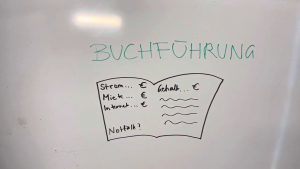 BUCHFÜHRUNG
Strom... €
Miete... €
Internet... €
Notfall?
Gehalt... €